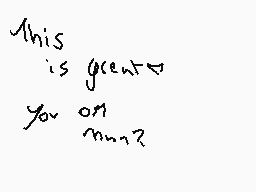 This
is great
you on
mun?